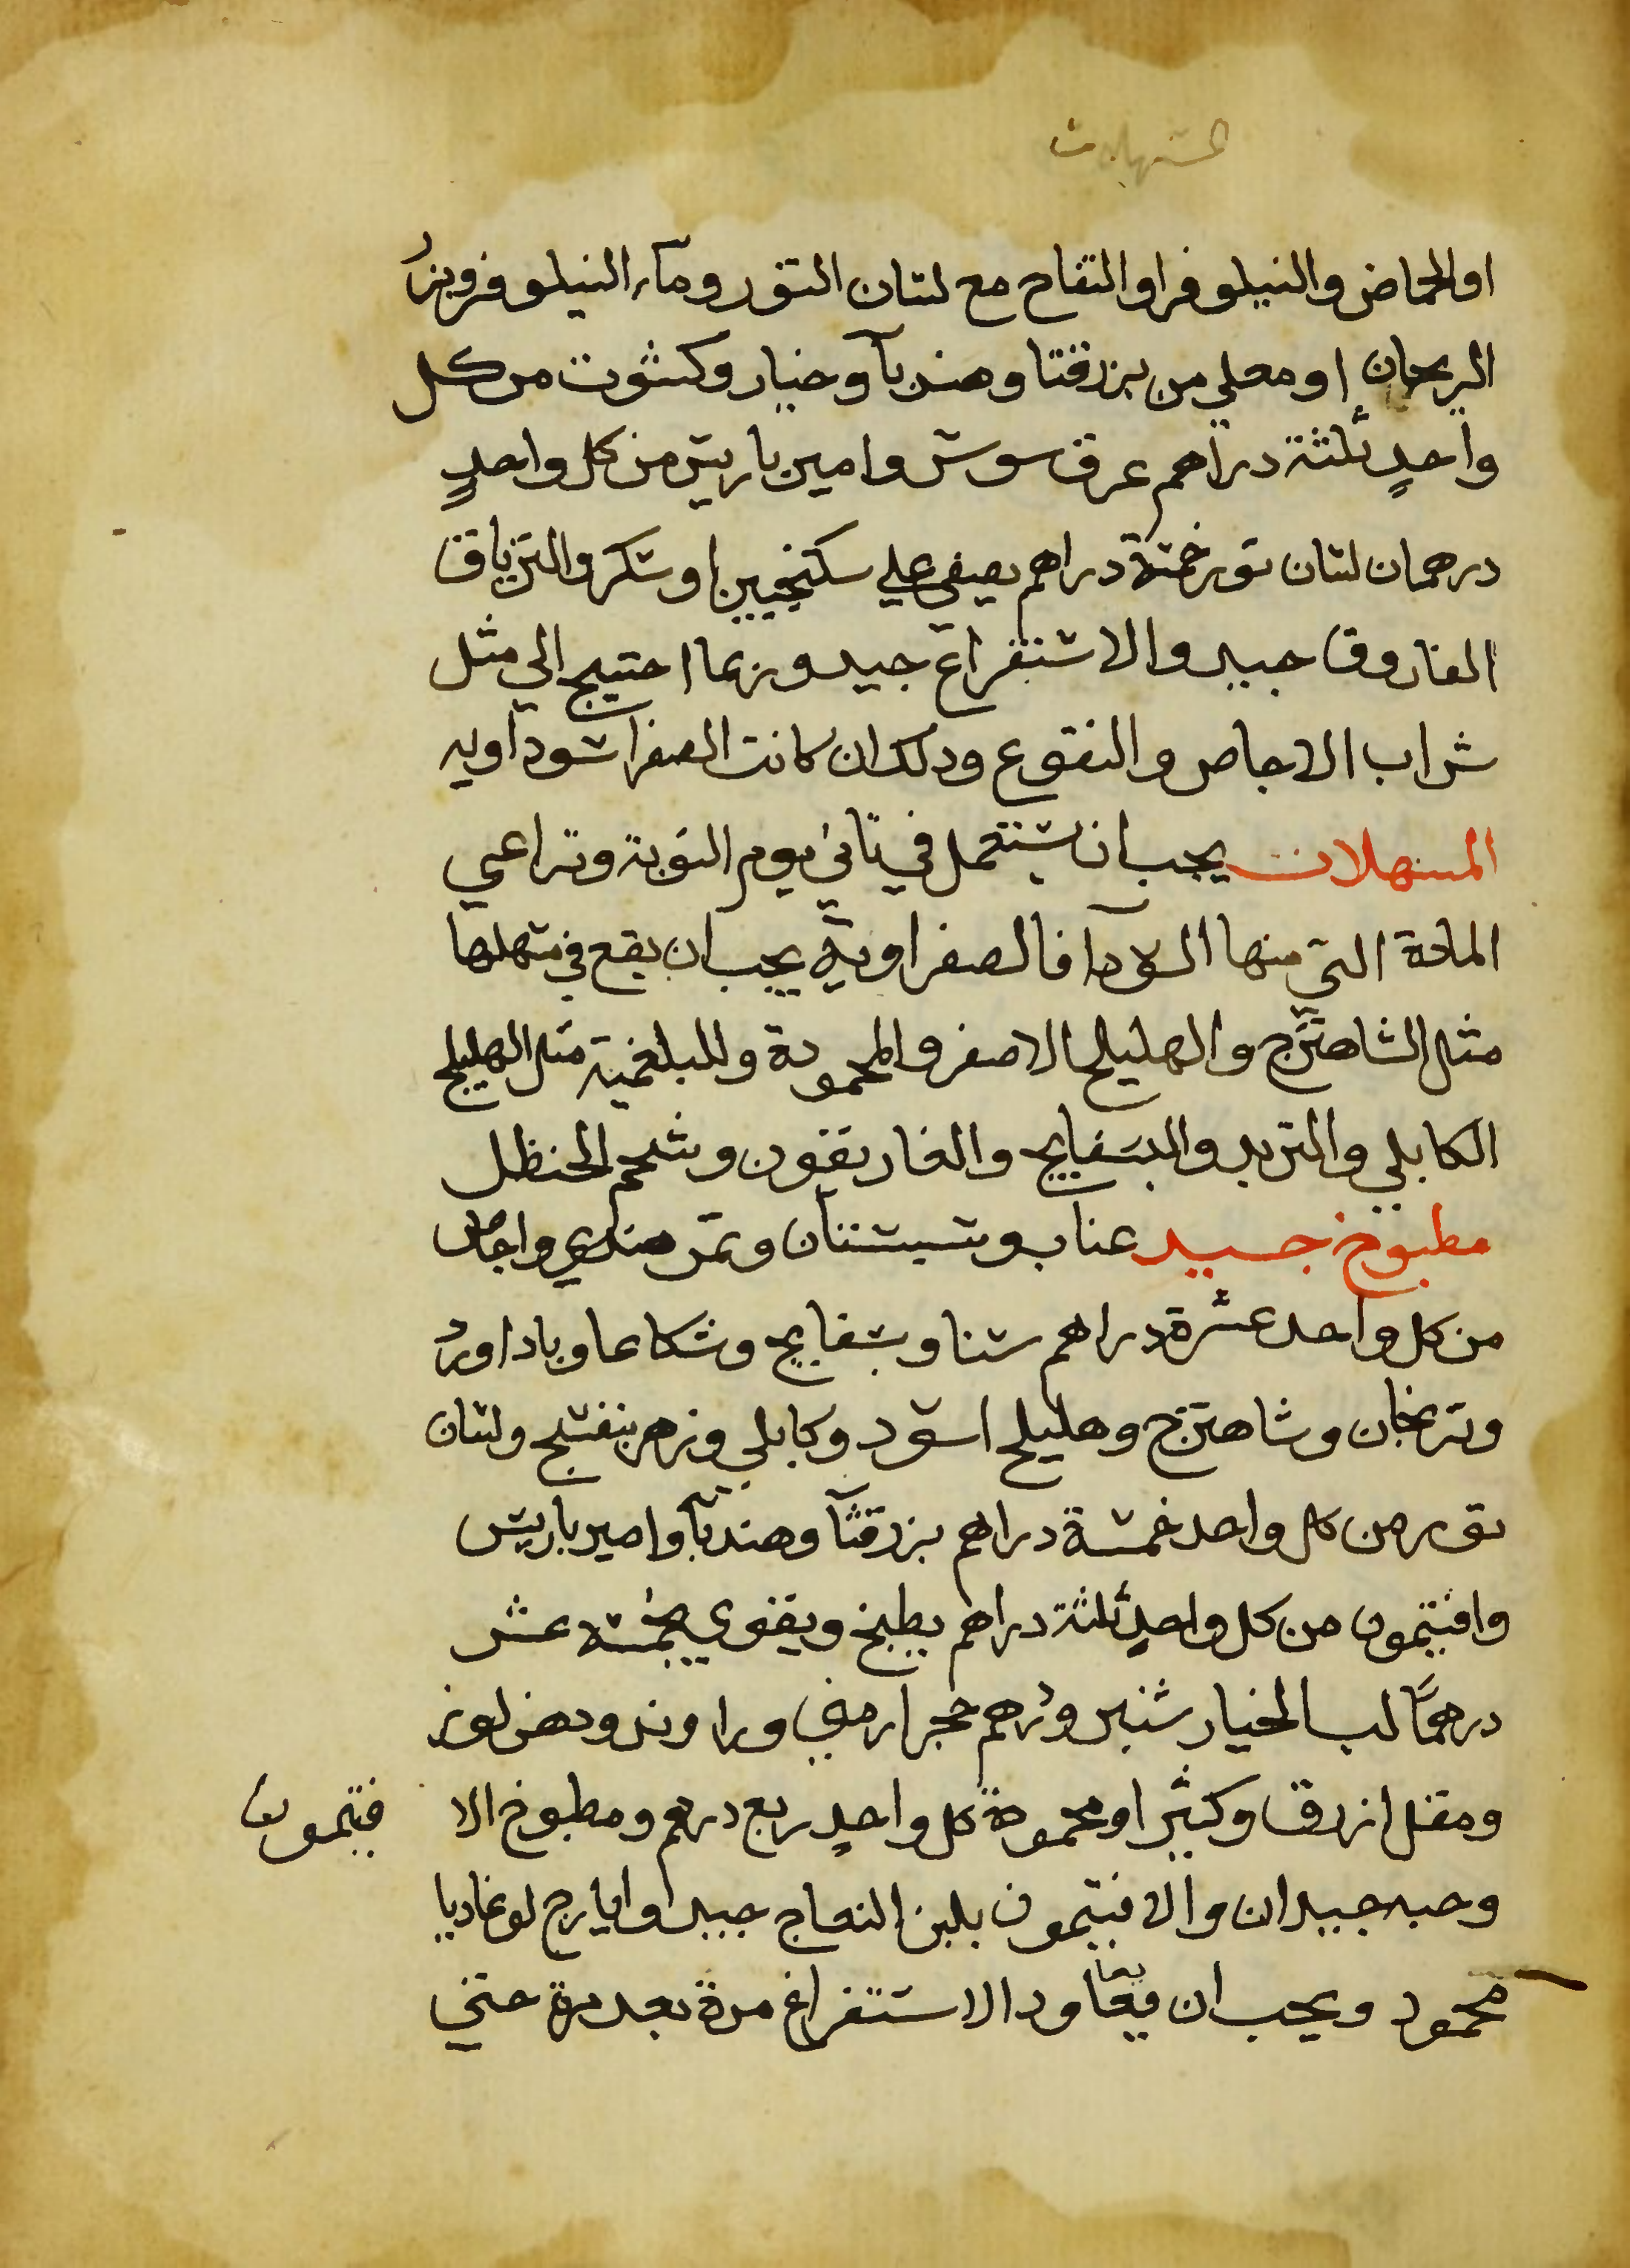 المسهلات
او الحماض والنيلوفر او التفاح مع لسان الثور وماء النيلوفر وبزر
الريحان او مغلي من بزرقثا وهندبآ وخيار وكشوت من كل
واحدٍ ثلثة دراهم عرق سوس وامير باريس من كل واحدٍ
درهمان لسان ثور خمسة دراهم يصفي علي سكنجبين او سكر والترياق
الفاروق جيد والاستفراغ جيد وربما احتيج الي مثل
شراب الاجاص والنقوع وذلك ان كانت الصفرا سوداويه
المسهلات يجب ان تستعمل في ثاني يوم النوبة وتراعي
المادة التي منها السودآ فالصفراوية يجب ان يقع في مسهلها
مثل الشاهترج والهليلج الاصفر والمحمودة وللبلغمية مثل الهليلج
الكابلي والتربد والبسفايج والغاريقون وشحم الحنظل
مطبوخ جيد عناب وسبستان وتمر هندي واجاص
من كل واحد عشرة دراهم سنا وبسفايج وشكاعا وباداورد
وترنجان وشاهترج وهليلج اسود وكابلي وزهر بنفسج ولسان
ثور من كل واحد خمسة دراهم بزرقثآ وهندبآ وامير باريس
وافتيمون من كل واحدٍ ثلثة دراهم يطبخ ويقوي بخمسة عشر
درهمًا لب الخيار شنبر ودرهم حجر ارمني وراوند ودهن لوز
ومقل ازرق وكثيرا ومحمودة كل واحدٍ ربع درهم ومطبوخ الا فتيمون
وحبه جيدان والافتيمون بلبن النعاج جيد وايارج لوغاديا
محمود ويجب ان يعاود الاستفراغ مرة بعد مرة حتي